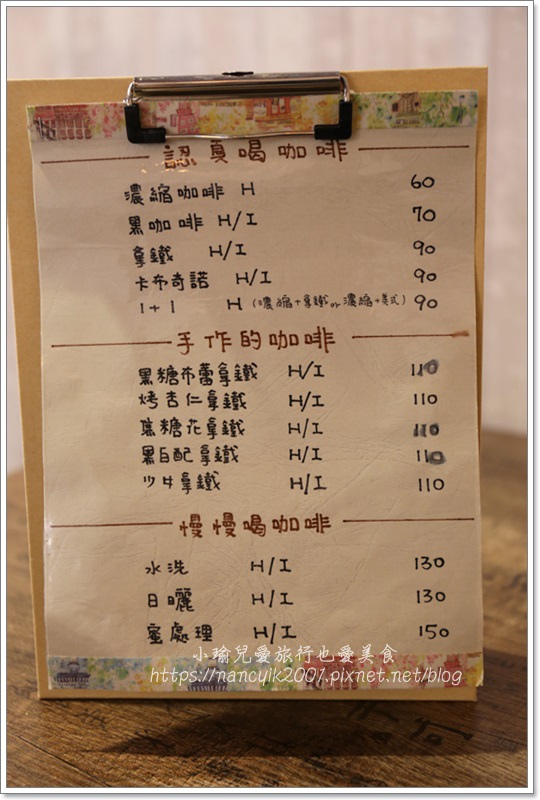 認真喝咖啡
濃縮咖啡 H 60
黑咖啡 H/I 70
拿鐵 H/I 90
卡布奇諾 H/I 90
1+1 H (濃縮+拿鐵 or 濃縮+美式) 90
手作的咖啡
黑糖布蕾拿鐵 H/I 110
烤杏仁拿鐵 H/I 110
焦糖花拿鐵 H/I 110
黑白配拿鐵 H/I 110
少女拿鐵 H/I 110
慢慢喝咖啡
水洗 H/I 130
日曬 H/I 130
蜜處理 H/I 150
小瑜兒愛旅行也愛美食
https://nancylk2007.pixnet.net/blog